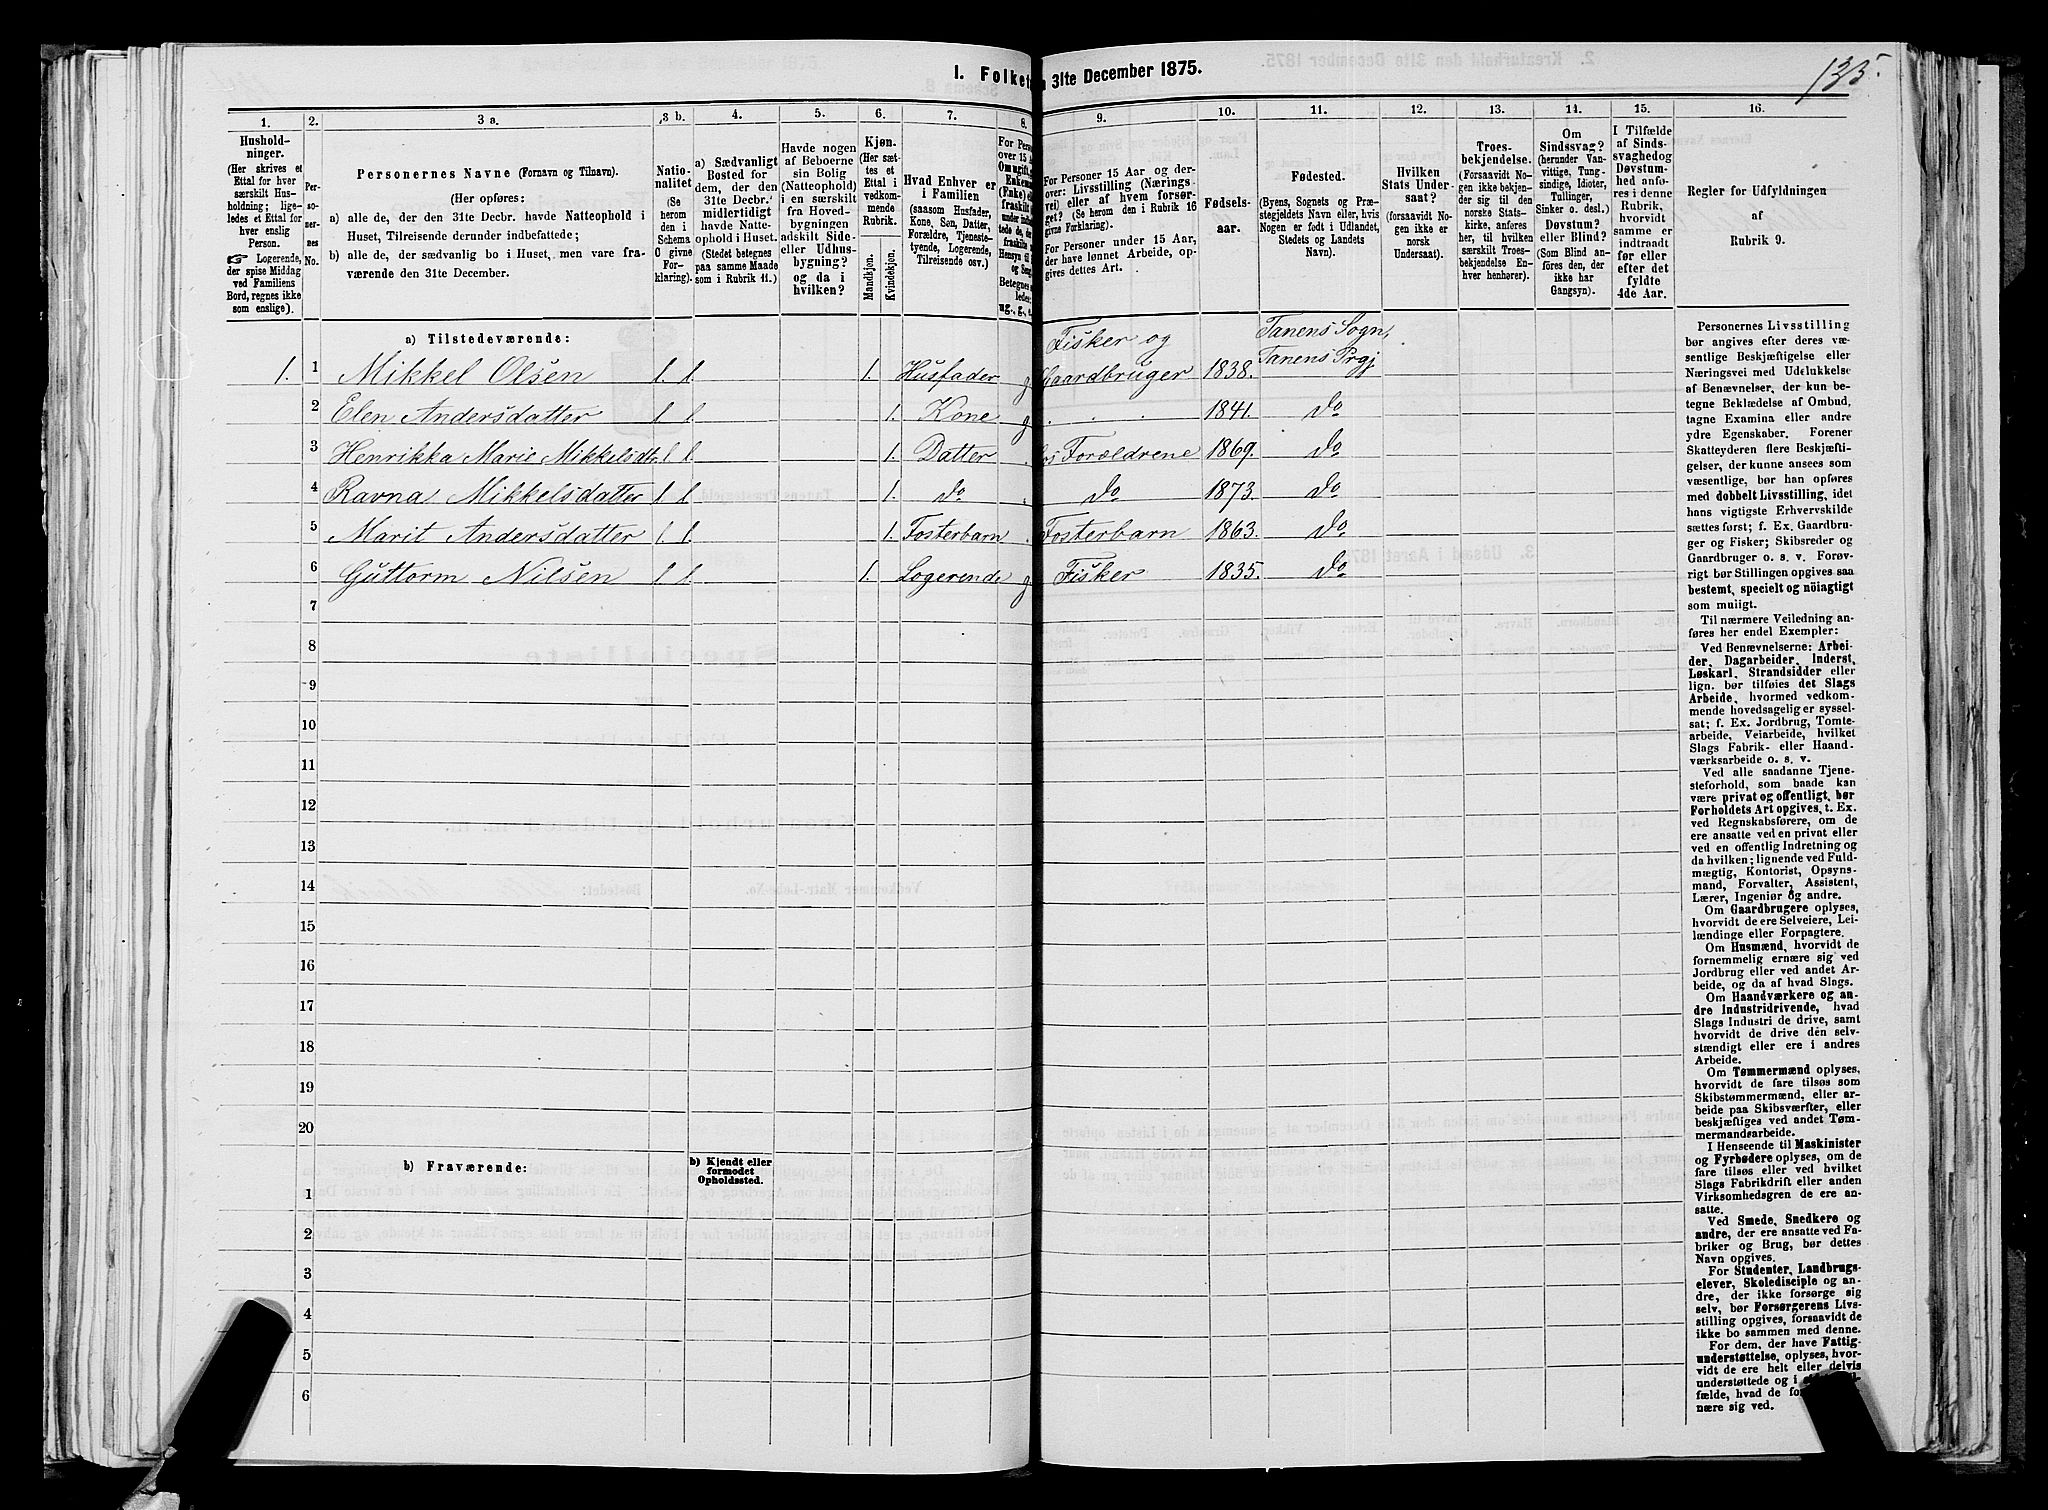 135.
I. Folket n 31te December 1875.
1. 2. 3 a. 3 b. 4. 5. 6. 7. 8. 9. 10. 11. 12. 13. 14. 15. 16.
Husholdninger.
(Her skrives et
Ettal for hver
særskilt Husholdning;
ligeledes et Ettal for
hver enslig
Person.
☞ Logerende,
der spise Middag
ved Familiens
Bord, regnes ikke
som enslige).
Personernes No.
Personernes Navne (Fornavn og Tilnavn).
(Her opføres:
a) alle de, der den 31te Decbr. havde Natteophold i
Huset, Tilreisende derunder indbefattede;
b) alle de, der sædvanlig bo i Huset, men vare fraværende
den 31te December.
Nationalitet
(Se
herom
den i
Schema
C givne
Forklaring).
a) Sædvanligt
Bosted for
dem, der den
31te Decbr.
midlertidigt
havde Natteophold
i Huset.
(Stedet betegnes
paa samme Maade
som i Rubrik 11.)
Havde nogen
af Beboerne
sin Bolig
(Natteophold)
i en særskilt
fra Hovedbygningen
adskilt Side- eller
Udhusbygning?
og da i
hvilken?
Kjøn.
(Her sættes
et
Ettal i
vedkommende
Rubrik.
Mandkjøn.
Kvindekjøn.
Hvad Enhver er
i Familien
(saasom Husfader,
Kone, Søn, Datter,
Forældre, Tjenestetyende,
Logerende,
Tilreisende osv.)
For Personer 15 Aar og derover:
Livsstilling (Næringsvei)
eller af hvem forsørget?
(Se herom den i Rubrik 16
givne Forklaring).
For Personer under 15 Aar,
der have lønnet Arbeide, opgives
dettes Art.
Fødselsaar.
Fødested.
(Byens, Sognets og Præstegjeldets
Navn eller, hvis
Nogen er født i Udlandet,
Stedets og Landets
Navn).
Hvilken
Stats Undersaat?
(forsaavidt Nogen
ikke er
norsk
Undersaat).
Troesbekjendelse.
(Forsaavidt Nogen
ikke bekjender
sig til den
norske Statskirke,
anføres
her, til hvilken
særskilt Troesbekjendelse
Enhver henhører).
Om
Sindssvag?
(herunder Vanvittige,
Tungsindige,
Idioter,
Tullinger,
Sinker o. desl.)
Døvstum?
eller Blind?
(Som Blind anføres
den, der
ikke har
Gangsyn).
I Tilfælde
af Sindssvaghed og
Døvstumhed
anføres i denne
Rubrik,
hvorvidt
samme er
indtraadt
før eller
efter det
fyldte
4de Aar.
Regler for Udfyldningen
af
Rubrik 9.
a) Tilstedeværende:
1. 1 Mikkel Olsen 1. 1. 1. Husfader g Fisker og Gaardbruger 1838. Tanens Sogn, Tanens Prgj
2 Elen Andersdatter 1 1. 1. Kone g . . . 1841. do
3 Henrikka Marie Mikkelsdt. 1 1. 1. Datter . os Forældrene 1869. do
4 Ravna Mikkelsdatter 1 1. 1. do . do 1873. do
5 Marit Andersdatter 1. 1. 1. Fosterbarn . Fosterbarn 1863. do
6 Guttorm Nilsen 1 1. 1. Logerende g Fisker 1835. do
7
8
9
10
11
12
13
14
15
16
17
18
19
20
b) Fraværende: b) Kjendt eller
formodet
Opholdssted.
1
2
3
4
5
6
Personernes Livsstilling
bør angives efter deres væsentlige
Beskjæftigelse eller
Næringsvei med Udelukkelse
af Benævnelser, der kun betegne
Beklædelse af Ombud,
tagne Examina eller andre
ydre Egenskaber. Forener
Skatteyderen flere Beskjæftigelser,
der kunne ansees som
væsentlige, bør han opføres
med dobbelt Livsstilling, idet
hans vigtigste Erhvervskilde
sættes først; f. Ex. Gaardbruger
og Fisker; Skibsreder og
Gaardbruger o. s. v. Forøvrigt
bør Stillingen opgives saa
bestemt, specielt og nøiagtigt
som muligt.
Til nærmere Veiledning anføres
her endel Exempler:
Ved Benævnelserne: Arbeider,
Dagarbeider, Inderst,
Løskarl, Strandsidder eller
lign. bør tilføies det Slags
Arbeide, hvormed vedkommende
hovedsagelig er sysselsat;
f. Ex. Jordbrug, Tomtearbeide,
Veiarbeide, hvilket
Slags Fabrik- eller Haandværksarbeide
o. s. v.
Ved alle saadanne Tjenesteforhold,
som baade kan
være privat og offentligt, bør
Forholdets Art opgives, t. Ex.
ved Regnskabsførere, om de
ere ansatte ved en privat eller
ved en offentlig Indretning og
da hvilken; lignende ved Fuldmægtig,
Kontorist, Opsynsmand,
Forvalter, Assistent,
Lærer, Ingeniør og andre.
Om Gaardbrugere oplyses,
hvorvidt de ere Selveiere, Leilændinge
eller Forpagtere.
Om Husmænd, hvorvidt de
fornemmelig ernære sig ved
Jordbrug eller ved andet Arbeide,
og da af hvad Slags.
Om Haandværkere og andre
Industridrivende, hvad
Slags Industri de drive, samt
hvorvidt de drive den selvstændigt
eller ere i andres
Arbeide.
Om Tømmermænd oplyses,
hvorvidt de fare tilsøs som
Skibstømmermænd, eller arbeide
paa Skibsværfter, eller
beskjæftiges ved andet Tømmermandsarbeide.
I Henseende til Maskinister
og Fyrbødere oplyses, om de
fare tilsøs eller ved hvilket
Slags Fabrikdrift eller anden
Virksomhedsgren de ere ansatte.
Ved Smede, Snedkere og
andre, der ere ansatte ved Fabriker
og Brug, bør dettes
Navn opgives.
For Studenter, Landbrugselever,
Skoledisciple og andre,
der ikke forsørge sig
selv, bør Forsørgerens Livsstilling
opgives, forsaavidt de
ikke bo sammen med denne.
For dem, der have Fattigunderstøttelse,
oplyses, hvorvidt
de ere helt eller delvis
understøttede og i
fælde, hvad de
nære sig ved.